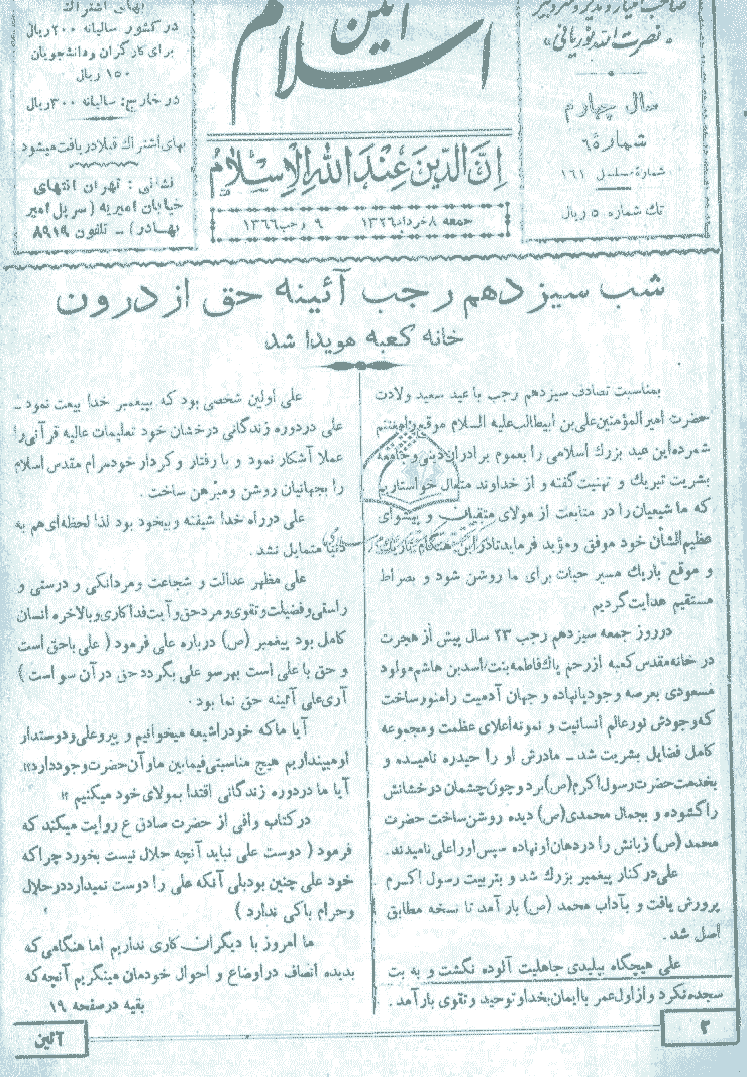 صاحب امتیاز و مدیر و سردبیر
«نصرت الله نوریانی»
سال چهارم
شمارهٔ ۶
شماره مسلسل ۱۶۱
تك شماره ۵ ریال
آئین
اسلام
اِنَّ الدّینَ عِندَ اللهِ الاِسْلامُ
جمعه ۸ خرداد ۱۳۲۶ ۹ رجب ۱۳۶۶
بهای اشتراك
در کشور سالیانه ۲۰۰ ریال
برای کارگران و دانشجویان
۱۵۰ ریال
در خارج: سالیانه ۳۰۰ ریال
بهای اشتراك قبلا دریافت میشود
نشانی: تهران انتهای
خیابان امیریه (سر پل امیر
بهادر) ـ تلفون ۸۹۱۹
شب سیزدهم رجب آئینه حق از درون
خانه کعبه هویدا شد
بمناسبت تصادف سیزدهم رجب با عید سعید ولادت
حضرت امیرالمؤمنین علی بن ابیطالب علیه السلام موقع را مغتنم
شمرده این عید بزرك اسلامی را بعموم برادران دینی و جامعه
بشریت تبریك و تهنیت گفته و از خداوند متعال خواستاریم
که ما شیعیان را در متابعت از مولای متقیان و پیشوای
عظیم الشأن خود موفق و مؤید فرماید تا در این هنگام تاریك
و موقع باریك مسیر حیات برای ما روشن شود و بصراط
مستقیم هدایت گردیم.
در روز جمعه سیزدهم رجب ۲۳ سال پیش از هجرت
در خانه مقدس کعبه از رحم پاك فاطمه بنت اسد بن هاشم مولود
مسعودی بعرصه وجود پا نهاده و جهان آدمیت را منور ساخت
که وجودش نور عالم انسانیت و نمونه اعلای عظمت و مجموعه
کامل فضایل بشریت شد ـ مادرش او را حیدره نامیده و
بخدمت حضرت رسول اکرم (ص) برد و چون چشمان درخشانش
را گشوده و بجمال محمدی (ص) دیده روشن ساخت حضرت
محمد (ص) زبانش را در دهان او نهاده سپس او را علی نامیدند.
علی در کنار پیغمبر بزرك شد و بتربیت رسول اکرم
پرورش یافت و بآداب محمد (ص) بار آمد تا نسخه مطابق
اصل شد.
علی هیچگاه بپلیدی جاهلیت آلوده نگشت و به بت
سجده نکرد و از اول عمر با ایمان بخدا و توحید و تقوی بار آمد.
علی اولین شخصی بود که بپیغمبر خدا بیعت نمود ـ
علی در دوره زندگانی درخشان خود تعلیمات عالیه قرآنی را
عملا آشکار نمود و با رفتار و کردار خود مرام مقدس اسلام
را بجهانیان روشن و مبرهن ساخت.
علی در راه خدا شیفته و بیخود بود لذا لحظه‌ای هم به
دنیا متمایل نشد.
علی مظهر عدالت و شجاعت و مردانگی و درستی و
راستی و فضیلت و تقوی و مرد حق و آیت فداکاری و بالاخره انسان
کامل بود پیغمبر (ص) درباره علی فرمود ( علی با حق است
و حق با علی است بهر سو علی بگردد حق در آن سو است )
آری علی آئینه حق نما بود.
آیا ما که خود را شیعه میخوانیم و پیرو علی و دوستدار
او میپنداریم هیچ مناسبتی فیمابین ما و آن حضرت وجود دارد؟!
آیا ما در دوره زندگانی اقتدا بمولای خود میکنیم ؟!
در کتاب وافی از حضرت صادق ع روایت میکند که
فرمود ( دوست علی نباید آنچه حلال نیست بخورد چرا که
خود علی چنین بود بلی آنکه علی را دوست نمیدارد در حلال
و حرام باکی ندارد )
ما امروز با دیگران کاری نداریم اما هنگامی که
بدیده انصاف در اوضاع و احوال خودمان مینگریم آنچه که
بقیه در صفحه ۱۹
۲
آئین